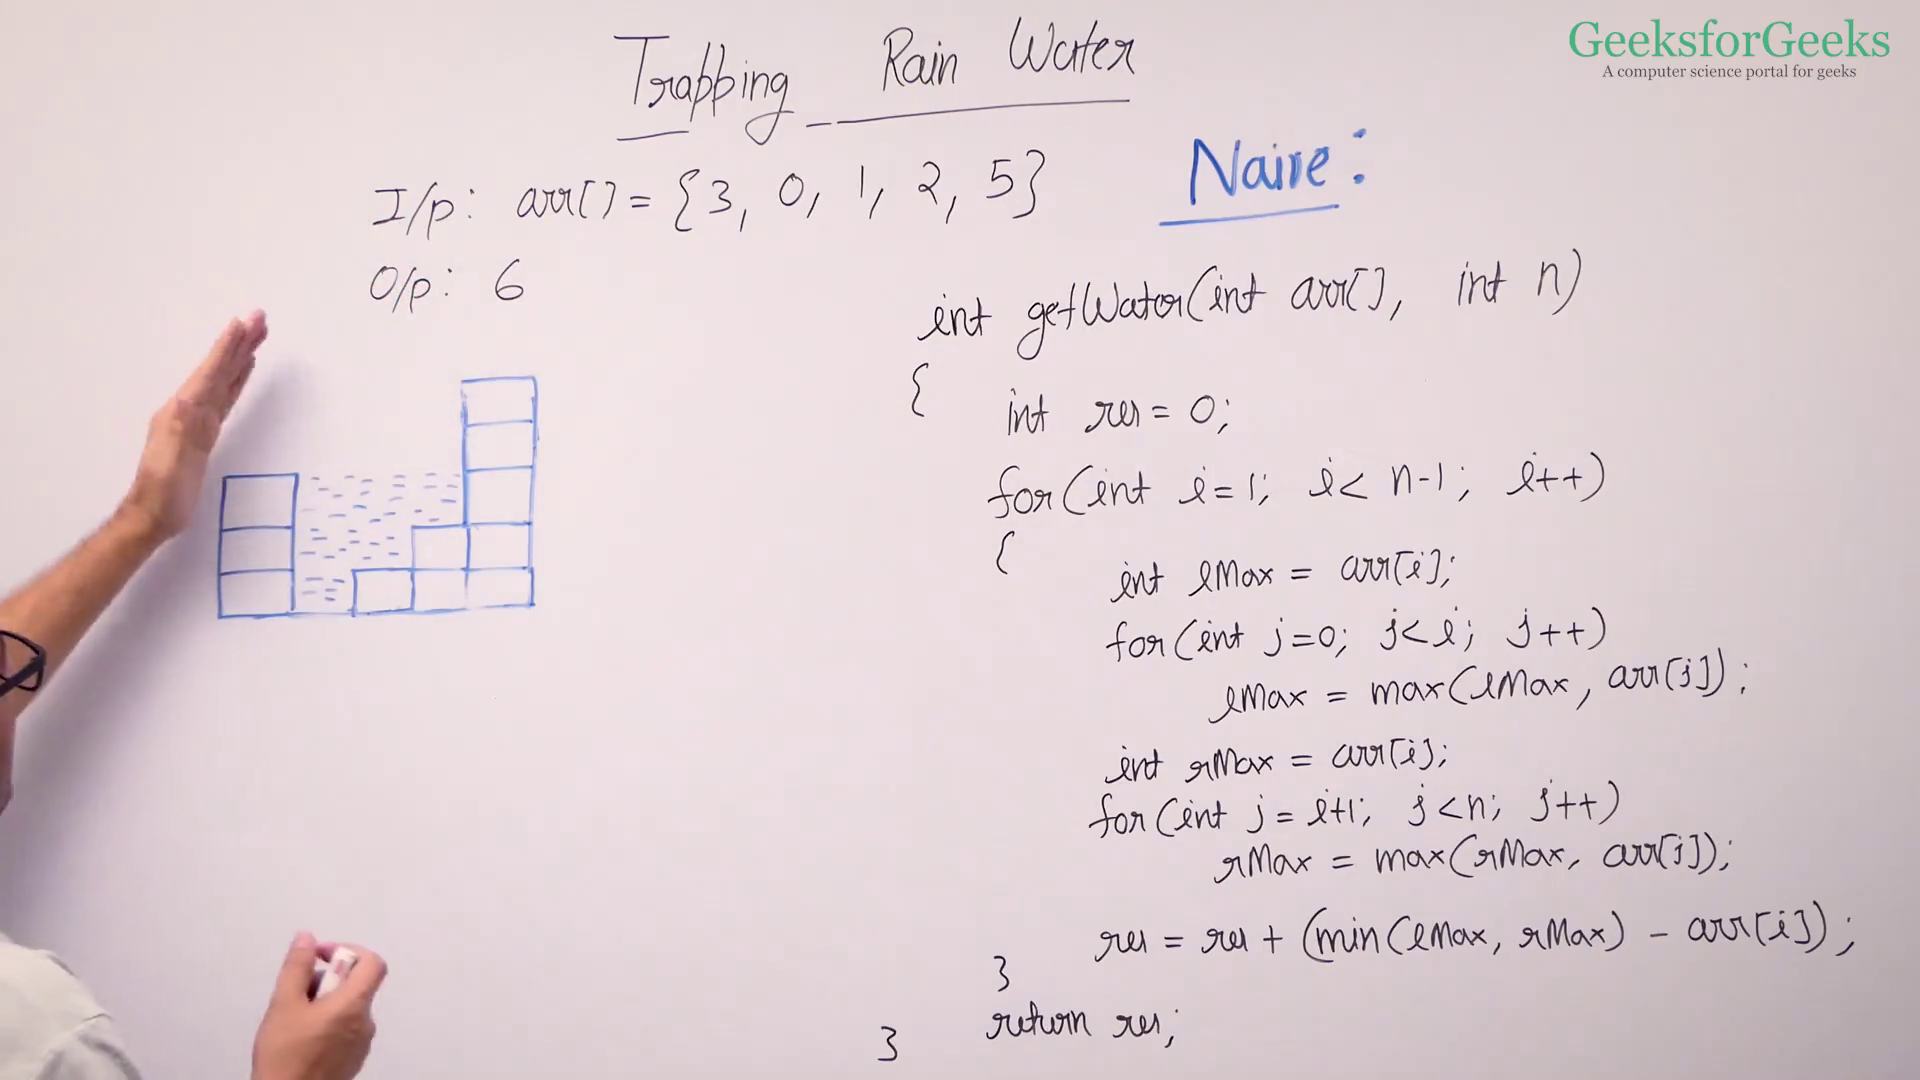 GeeksforGeeks
A computer science portal for geeks
Trapping Rain Water
I/p: arr[] = {3, 0, 1, 2, 5}
O/p: 6
Naive:
int getWater(int arr[], int n)
{
int res = 0;
for(int i=1; i< n-1; i++)
{
int lMax = arr[i];
for(int j=0; j<i; j++)
lMax = max(lMax, arr[j]);
int rMax = arr[i];
for(int j = i+1; j<n; j++)
rMax = max(rMax, arr[j]);
res = res + (min(lMax, rMax) - arr[i]);
}
return res;
}